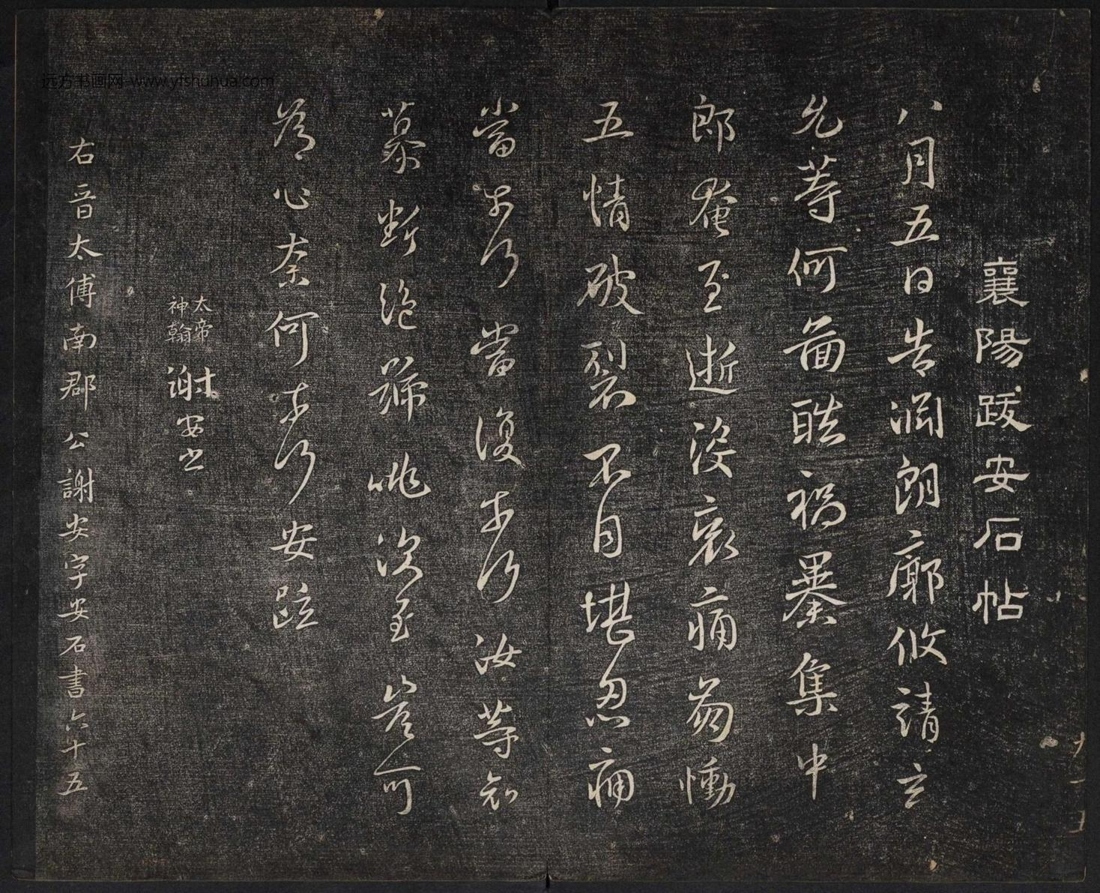 远方书画网 www.yfshuhua.com
襄陽跋安石帖
八月五日告淵朗廓攸靖玄
允等何啚酷禍暴集中
郎奄至逝沒哀痛崩慟
五情破裂不自堪忍痛
當奈何當復奈何汝等
慕斷絕號咷深至豈可
為心奈何奈何安疏
太帝
神翰
謝安
右晉太傅南郡公謝安字安石書六十五